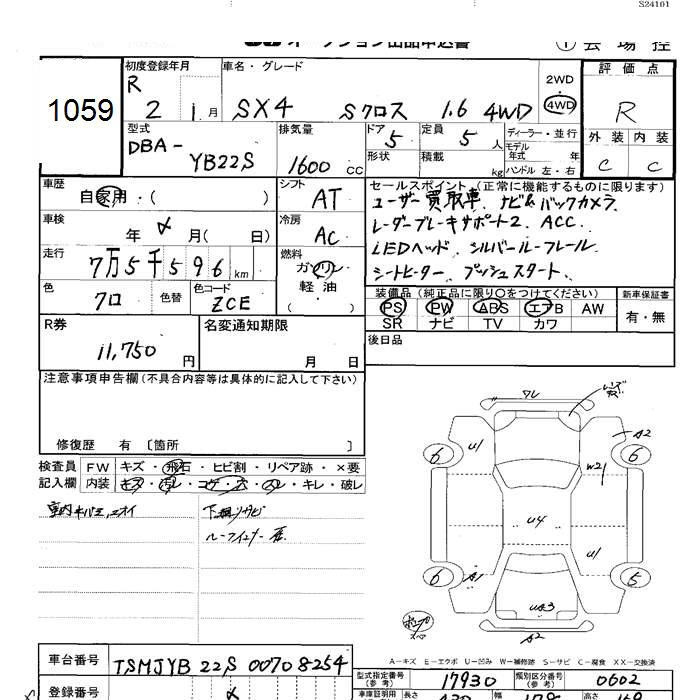 S24101
オークション出品申込書
① 会場控
1059
初度登録年月
R 2 年 1 月
車名・グレード
SX4 Sクロス 1.6 4WD
2WD
4WD
評価点
R
型式
DBA-
YB22S
排気量
1600 CC
ドア 5
形状
定員 5 人
積載 kg
ディーラー・並行
モデル年式 年
ハンドル 左・右
外装 内装
C C
車歴
自家用:( )
シフト
AT
車検
年 月( 日)
冷房
AC
走行
7万5千596 km
燃料
ガソリン
軽油
( )
色
クロ
色替
色コード
ZCE
セールスポイント(正常に機能するものに限ります)
ユーザー買取車、ナビ&バックカメラ
レーダーブレーキサポート2、ACC、
LEDヘッド、シルバールーフレール、
シートヒーター、プッシュスタート、
装備品(純正品に限り○をつけてください)
PS PW ABS エアB AW
SR ナビ TV カワ
新車保証書
有・無
R券
11,750 円
名変通知期限
月 日
後日品
注意事項申告欄(不具合内容等は具体的に記入して下さい)
修復歴 有 〔箇所 〕
検査員 FW キズ・飛石・ヒビ割・リペア跡・×要
記入欄 内装 キズ・汚レ・コゲ・穴・スレ・キレ・破レ
下廻りサビ
レンズキズ
ワレ
U1
A2
6
6
W21
U4
U1
6
A1
5
U3
A2
A-キズ E-エクボ U-凹み W-補修跡 S-サビ C-腐食 XX-交換済
車台番号
TSMJYB22S00708254
登録番号
型式指定番号(参考)
17930
類別区分番号(参考)
0602
車庫証明用(参考)
長さ
幅
高さ